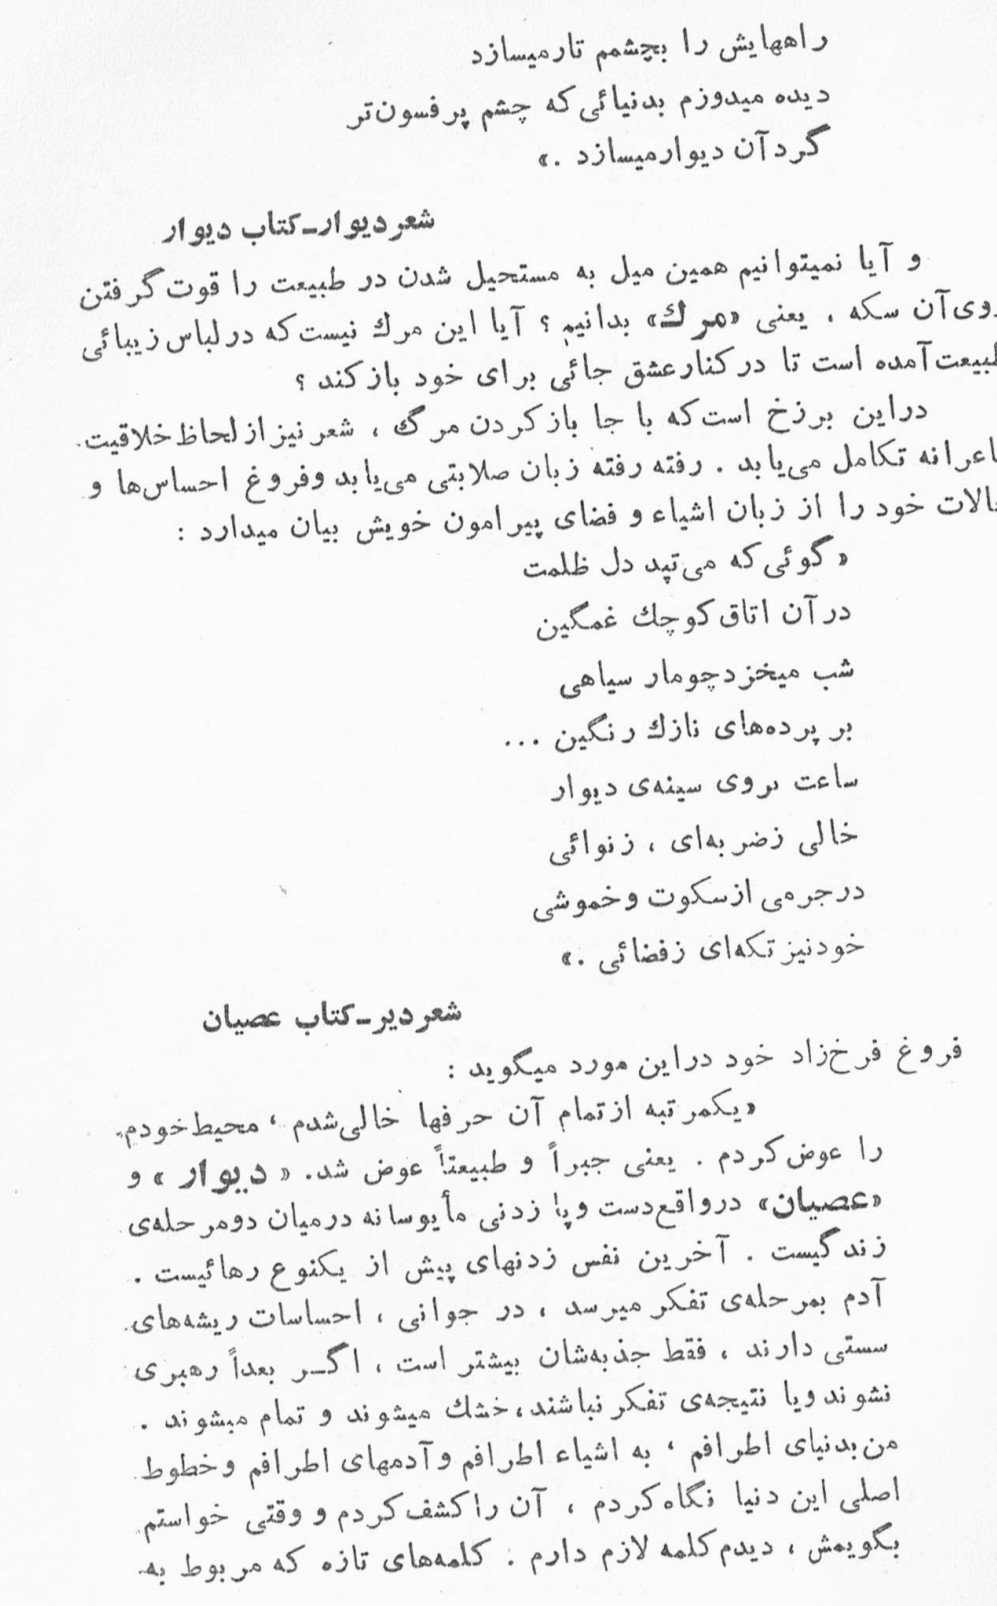 راههایش را بچشمم تارمیسازد
دیده میدوزم بدنیائی‌که چشم پر فسون‌تر
گردآن دیوارمیسازد .»
شعردیوار-کتاب دیوار
و آیا نمیتوانیم همین میل به مستحیل شدن در طبیعت را قوت گرفتن
روی‌آن سکه ، یعنی «مرك» بدانیم ؟ آیا این مرك نیست‌که درلباس زیبائی
طبیعت‌آمده است تا درکنارعشق جائی برای خود بازکند ؟
دراین برزخ است‌که با جا بازکردن مرگ ، شعرنیزازلحاظ‌خلاقیت
شاعرانه تکامل می‌یابد . رفته رفته زبان صلابتی می‌یابد وفروغ احساس‌ها و
حالات خود را از زبان اشیاء و فضای پیرامون خویش بیان میدارد :
« گوئی‌که می‌تپد دل ظلمت
درآن اتاق‌کوچك غمگین
شب میخزدچومار سیاهی
بر پرده‌های نازك رنگین ...
ساعت بروی سینه‌ی دیوار
خالی زضربه‌ای ، زنوائی
درجرمی ازسکوت وخموشی
خودنیزتکه‌ای زفضائی .»
شعردیر-کتاب عصیان
فروغ فرخ‌زاد خود دراین مورد میگوید :
«یکمرتبه ازتمام آن حرفها خالی‌شدم ، محیط‌خودم
را عوض‌کردم . یعنی جبراً و طبیعتاً عوض شد. « دیوار » و
«عصیان» درواقع‌دست وپا زدنی مأیوسانه درمیان دومرحله‌ی
زندگیست . آخرین نفس زدنهای پیش از یکنوع رهائیست .
آدم بمرحله‌ی تفکر میرسد ، در جوانی ، احساسات ریشه‌های
سستی دارند ، فقط جذبه‌شان بیشتر است ، اگـر بعداً رهبری
نشوند ویا نتیجه‌ی تفکر نباشند، خشك میشوند و تمام میشوند .
من‌بدنیای اطرافم ، به اشیاء اطرافم وآدمهای اطرافم وخطوط
اصلی این دنیا نگاه‌کردم ، آن راکشف‌کردم و وقتی خواستم
بگویمش ، دیدم‌کلمه لازم دارم . کلمه‌های تازه که مربوط به